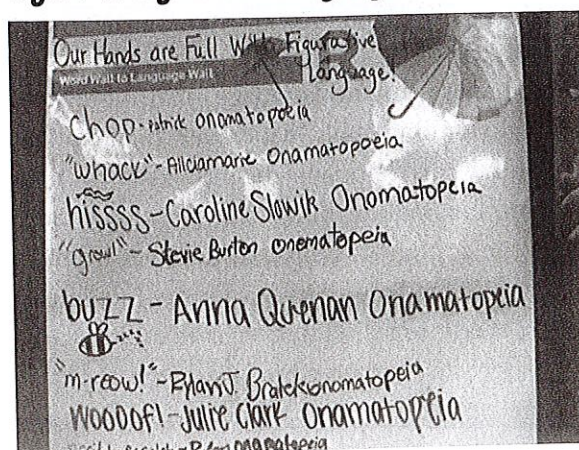 Our Hands are Full With Figurative
Language!
Word Wall to Language Wall
Chop - Patrick onomatopoeia
"whack" - Aliciamarie Onamatopoeia
hissss - Caroline Slowik Onomatopeia
"growl" - Stevie Burton onomatopeia
buzz - Anna Quenan Onamatopeia
"m-reow!" - Dylan J. onomatopeia
WOOOOf! - Julie Clark Onamatopeia
onamatopeia